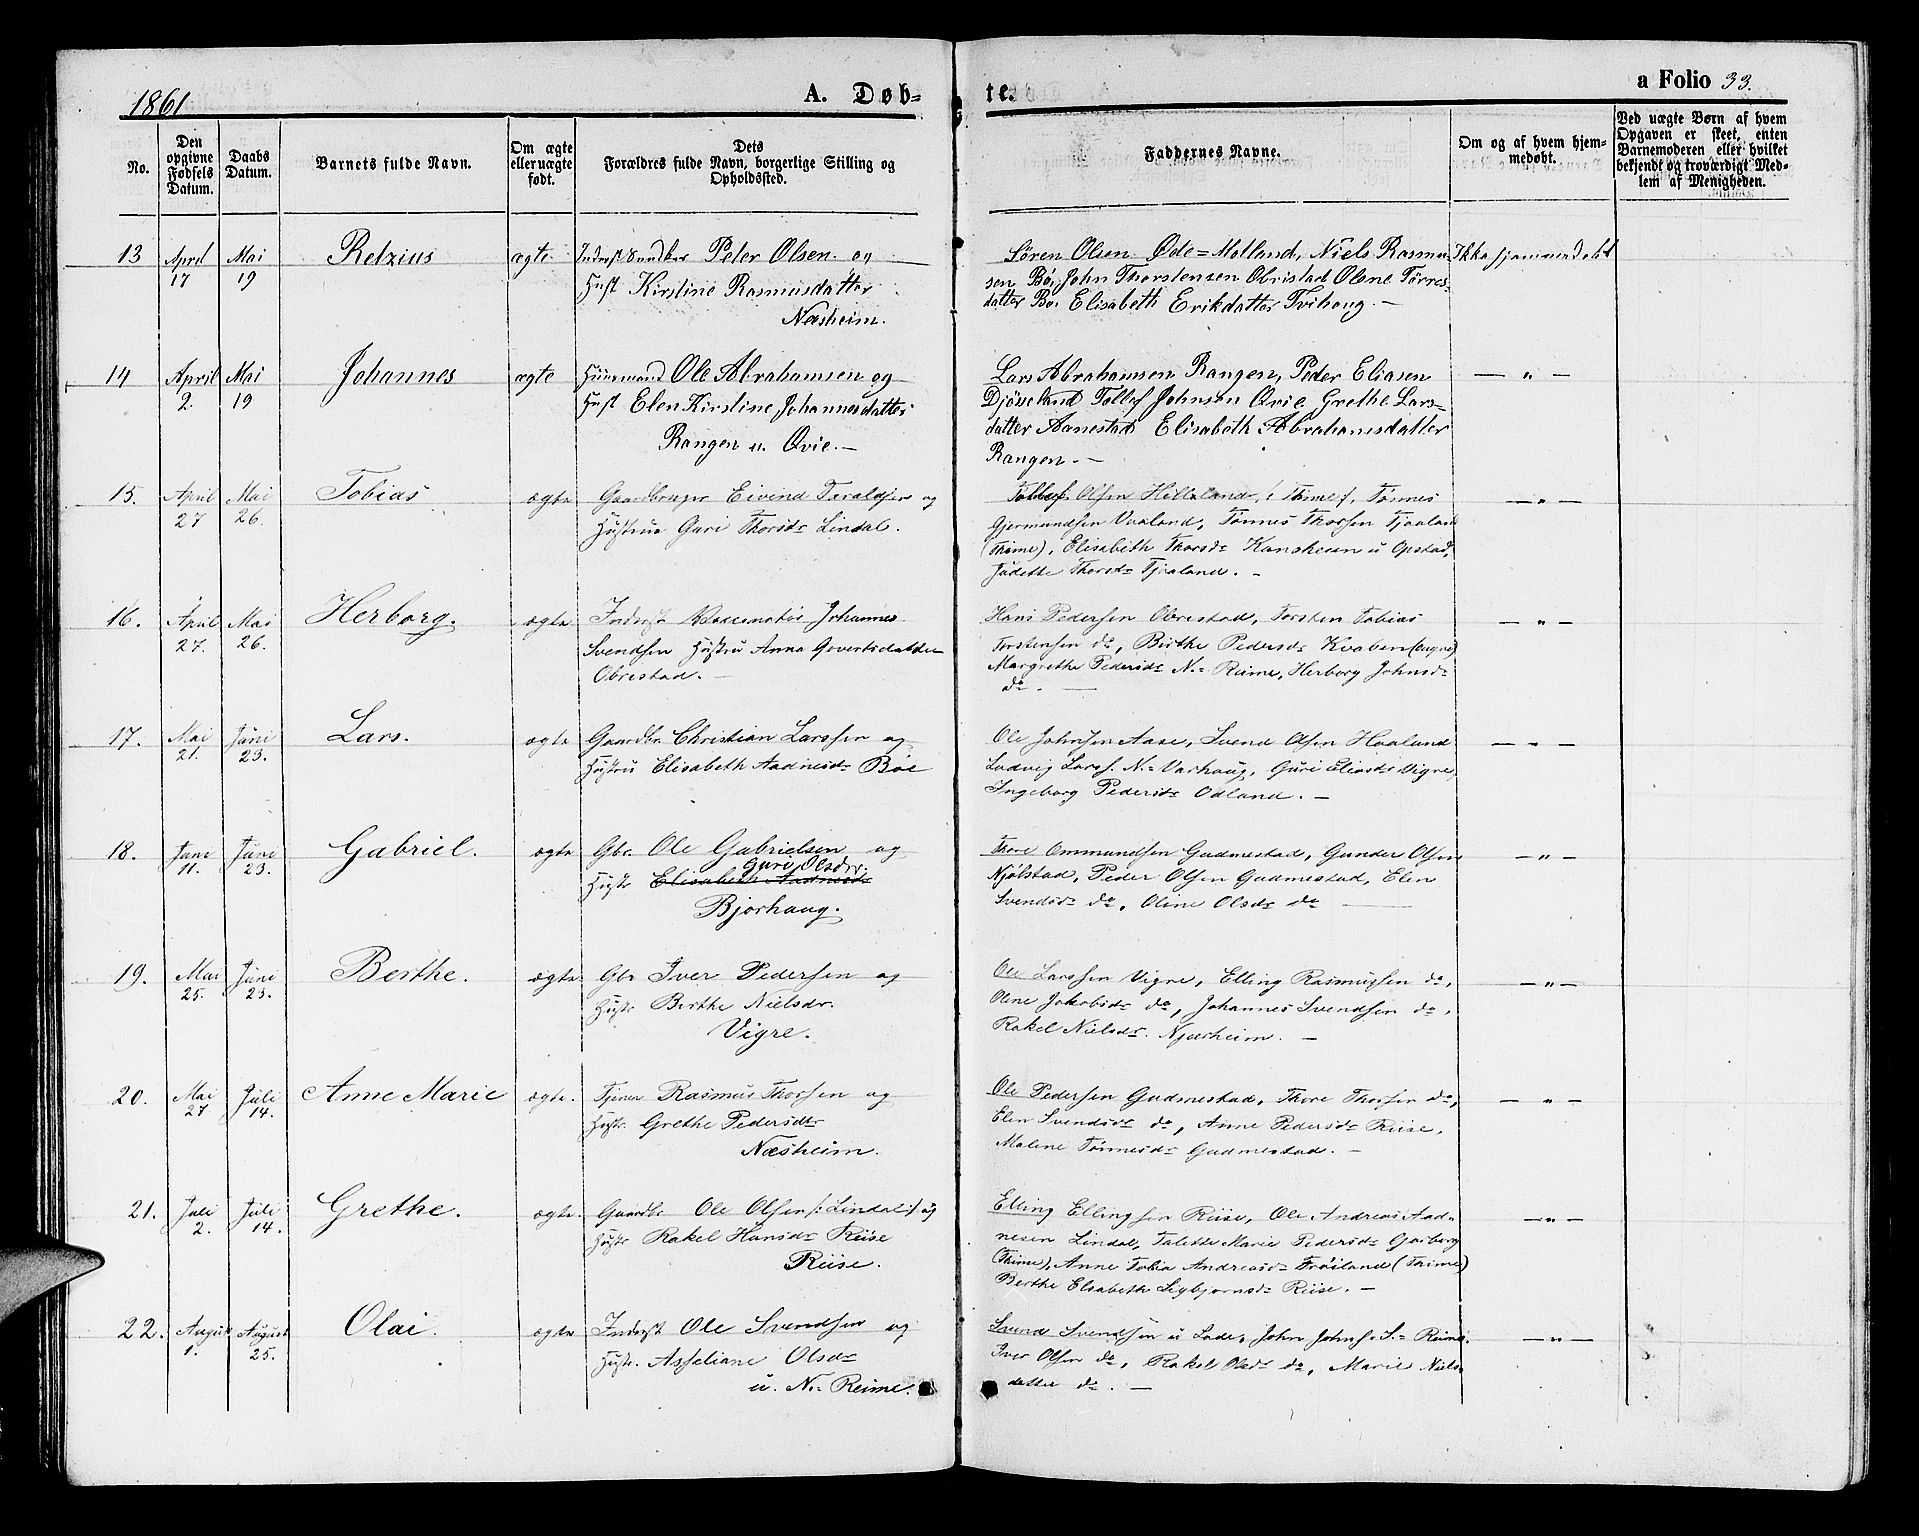 1861
A. Døb=
te.
a Folio 33.
No.
Den opgivne Fødsels Datum.
Daabs Datum.
Barnets fulde Navn.
Om ægte eller uægte født.
Dets Forældres fulde Navn, borgerlige Stilling og Opholdssted.
Faddernes Navne.
Om og af hvem hjemmedøbt.
Ved uægte Børn af hvem Opgaven er skeet, enten Barnemoderen eller hvilket bekjendt og troværdigt Medlem af Menigheden.
13 April 17 Mai 19 Retzius ægte.
Inderst Peter Olsen og
Hust Kirstine Rasmusdatter
Næsheim.
Søren Olsen Øde=Motland, Niels Rasmu-
sen Bø, John Thorstensen Obristad Olene Tørres-
datter Bø. Elisabeth Erikdatter Tvihoug. —
Ikke hjemmedøbt
14 April 2. Mai 19 Johannes ægte
Huusmand Ole Abrahamsen og
Hust Elen Kirstine Johannesdatter
Rangen u. Qvie. —
Lars Abrahamsen Rangen, Peder Eliasen
Djöseland Tollef Johnsen Qvie Grethe Lars=
datter Aanestad Elisabeth Abrahamsdatter
Rangen. —
— " —
15. April 27 Mai 26. Tobias ægte
Gaardbruger Eivind Taraldsen og
Hustrue Guri Thorsdr Lindal.
Tollef Olsen Hilleland, (Thime), Tønnes
Gjermundsen Vaaland, Tønnes Thorsen Tjaaland
(Thime), Elisabeth Thorsdr u Opstad,
Judette Thorsdr Tjaaland. —
— " —
16. April 27. Mai 26. Herborg. ægte
Inderst Johannes
Svendsen Hustru Anna Govertsdatter
Obrestad. —
Hans Pedersen Obrestad, Torsten Tobias
Torstensen do, Birthe Pedersdr Kvalen
Margrethe Pedersdr N.= Reime, Herborg Johnsdr
do. —
— " —
17. Mai 21. Juni 23. Lars. ægte
Gaardbr. Christian Larssen og
Hustru Elisabeth Aadnesdr Bøe
Ole Johnsen Aase, Svend Olsen Haaland
Ludvig Larss. N.= Varhaug, Guri Eliasdr Vigre,
Ingeborg Pedersdr Odland. —
— " —
18. Juni 11. Juni 23. Gabriel. ægte
Gbr. Ole Gabrielsen og
Guri Olsdr.
Hustr Elisabeth Aadnesdr
Bjorhaug.
Thore Ommundsen Gudmestad, Gunder Olsen
Njølstad, Peder Olsen Gudmestad, Elen
Svendsdr do, Oline Olsdr do —
— " —
19. Mai 25. Juni 23. Berthe. ægte.
Gbr Iver Pedersen og
Hustr Berthe Nielsdr.
Vigre.
Ole Larssen Vigre, Elling Rasmussen do,
Olene Jakobsdr do, Johannes Svendsen do,
Rakel Nielsdr. Njærheim. —
— " —
20. Mai 27. Juli 14. Anne Marie ægte.
Tjener Rasmus Thorsen og
Hustr. Grethe Pedersdr
Næsheim.
Ole Pedersen Gudmestad, Thore Thorsen do,
Elen Svendsdr do, Anne Pedersdr Riise,
Malene Tønnesdr Gudmestad. —
— " —
21. Juli 2. Juli 14. Grethe. ægte.
Gaardbr Ole Olsen (: Lindal :) og
Hustr Rakel Hansdr Riise
Riise.
Elling Ellingsen Riise, Ole Andreas Aad=
nesen Lindal, Talette Marie Pedersdr Garborg
(Thime), Anne Tobia Andreasdr Frøiland (Thime)
Berthe Elsabeth Sigbjørnsdr Riise. —
— " —
22. August 1. August 25. Olai. ægte
Inderst Ole Svendsen og
Hustr. Asseliane Olsdr
u. N.= Reime.
Svend Svendsen u Lode, John Johns. S.= Reime.
Iver Olsen do, Rakel Olsdr do, Marie Niels-
datter do. —
— " —